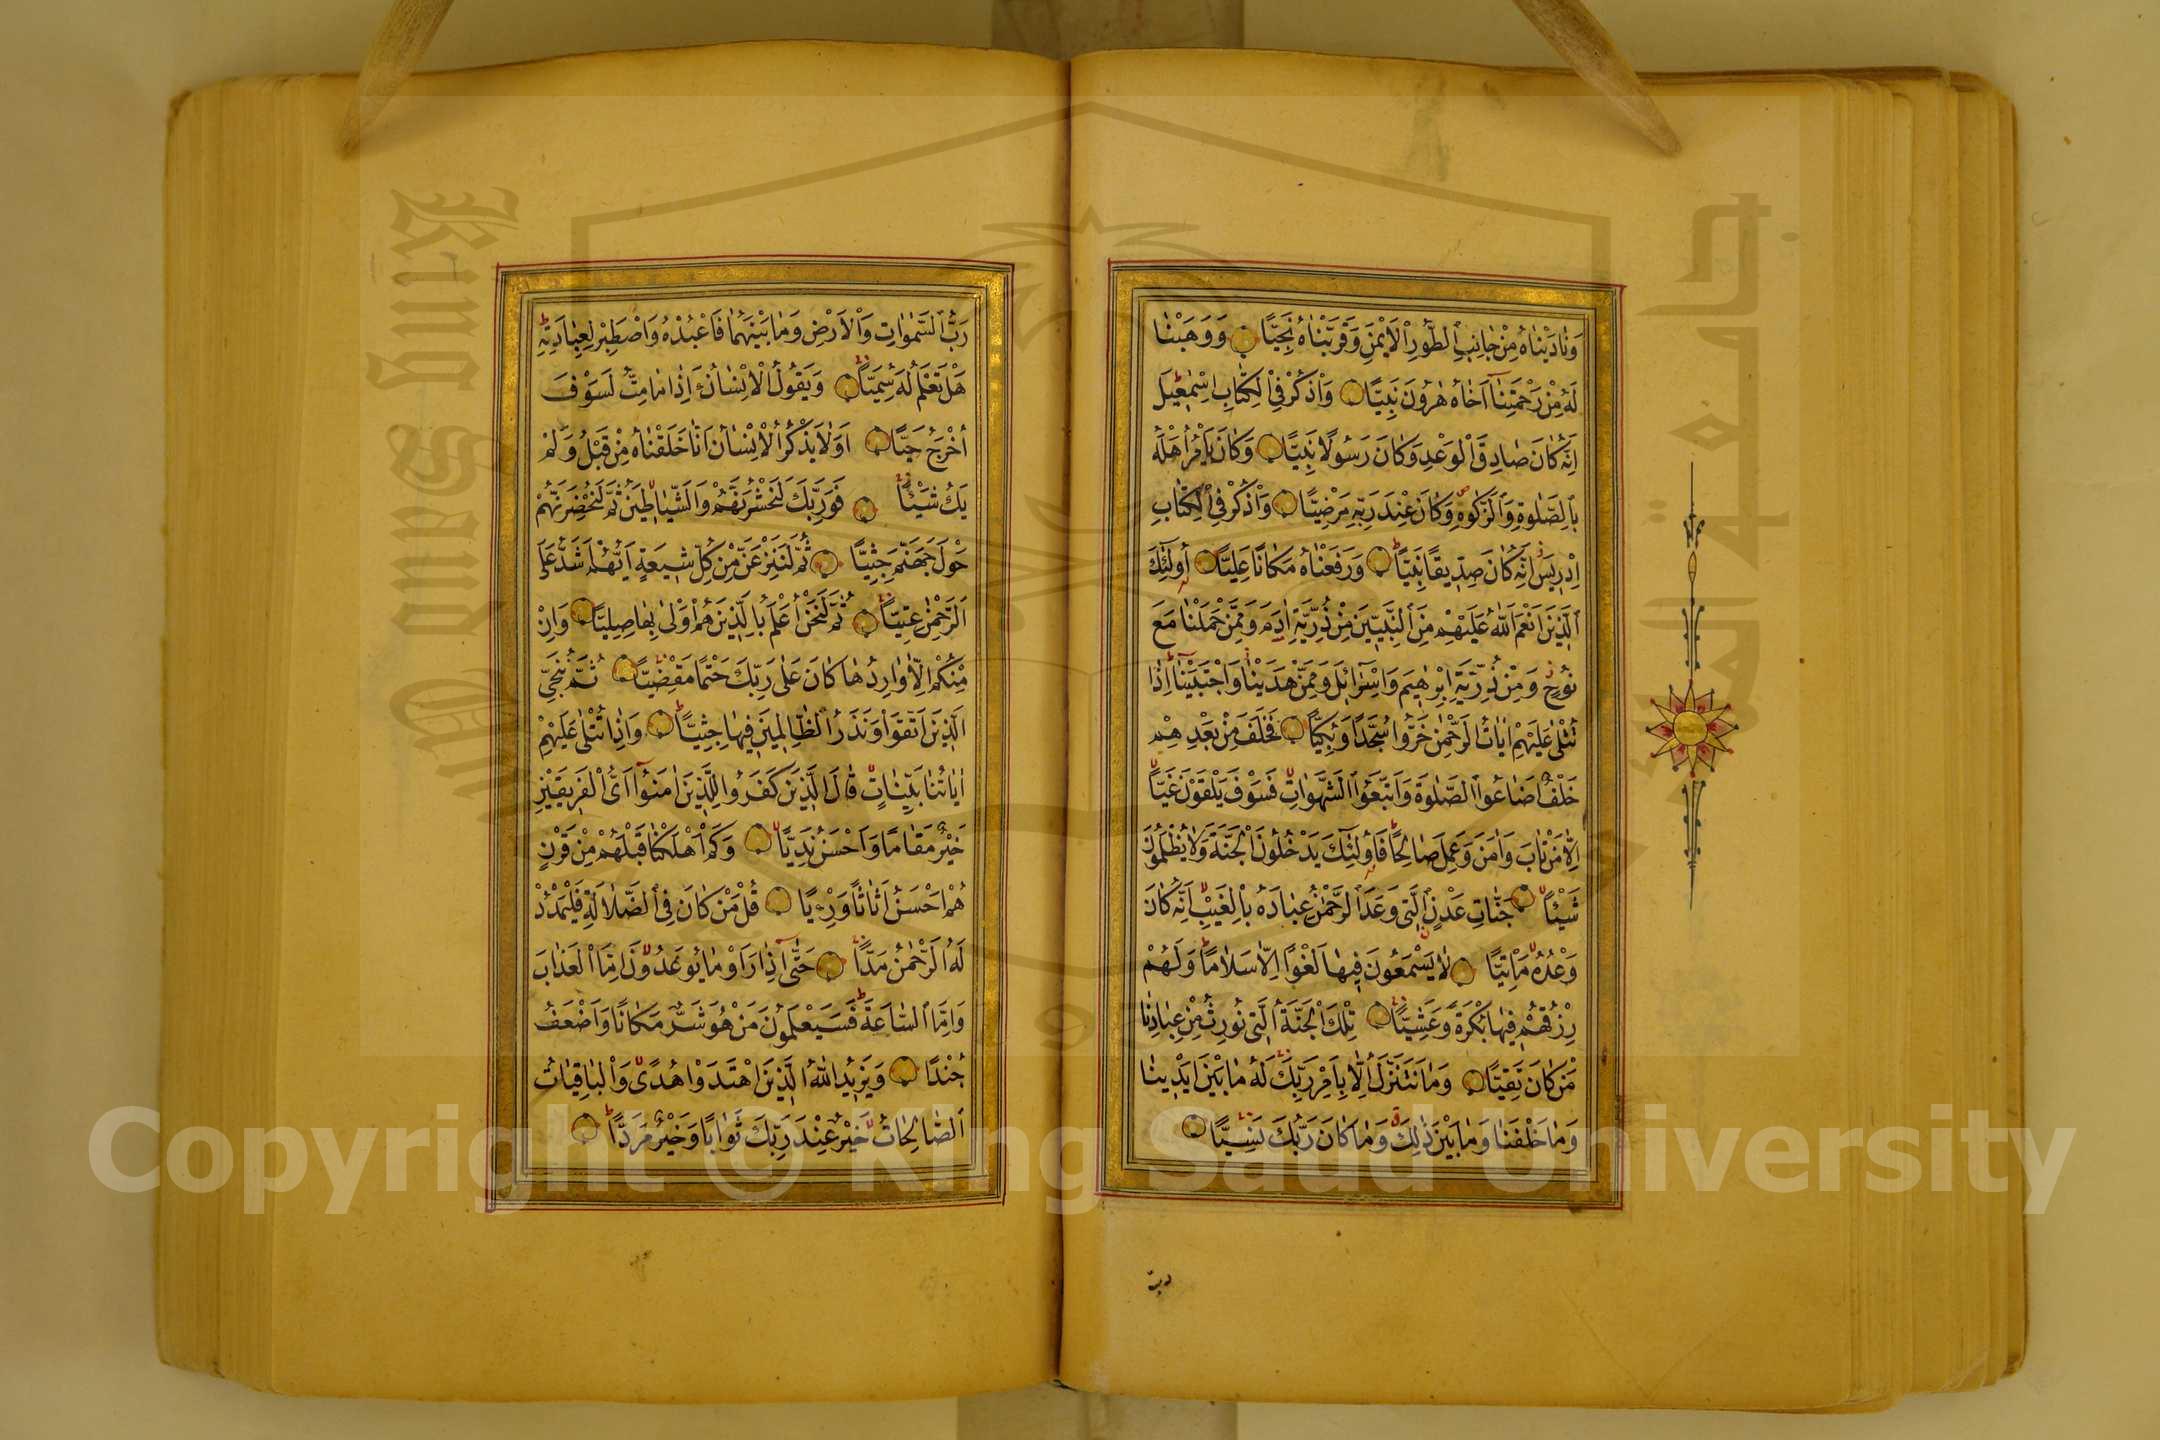 وَنَادَيْنَاهُ مِنْ جَانِبِ الطُّورِ الْاَيْمَنِ وَقَرَّبْنَاهُ نَجِيًّا وَوَهَبْنَا
لَهُ مِنْ رَحْمَتِنَآ اَخَاهُ هٰرُونَ نَبِيًّا وَاذْكُرْ فِي الْكِتَابِ اِسْمٰعِيلَ
اِنَّهُ كَانَ صَادِقَ الْوَعْدِ وَكَانَ رَسُولًا نَبِيًّا وَكَانَ يَأْمُرُ اَهْلَهُ
بِالصَّلٰوةِ وَالزَّكٰوةِ وَكَانَ عِنْدَ رَبِّهِ مَرْضِيًّا وَاذْكُرْ فِي الْكِتَابِ
اِدْرِيسَ اِنَّهُ كَانَ صِدِّيقًا نَبِيًّا وَرَفَعْنَاهُ مَكَانًا عَلِيًّا اُولٰٓئِكَ
الَّذِينَ اَنْعَمَ اللّٰهُ عَلَيْهِمْ مِنَ النَّبِيِّينَ مِنْ ذُرِّيَّةِ اٰدَمَ وَمِمَّنْ حَمَلْنَا مَعَ
نُوحٍ وَمِنْ ذُرِّيَّةِ اِبْرٰهِيمَ وَاِسْرَآئِلَ وَمِمَّنْ هَدَيْنَا وَاجْتَبَيْنَا اِذَا
تُتْلٰى عَلَيْهِمْ اٰيَاتُ الرَّحْمٰنِ خَرُّوا سُجَّدًا وَبُكِيًّا فَخَلَفَ مِنْ بَعْدِهِمْ
خَلْفٌ اَضَاعُوا الصَّلٰوةَ وَاتَّبَعُوا الشَّهَوَاتِ فَسَوْفَ يَلْقَوْنَ غَيًّا
اِلَّا مَنْ تَابَ وَاٰمَنَ وَعَمِلَ صَالِحًا فَاُولٰٓئِكَ يَدْخُلُونَ الْجَنَّةَ وَلَا يُظْلَمُونَ
شَيْئًا جَنَّاتِ عَدْنٍ الَّتِي وَعَدَ الرَّحْمٰنُ عِبَادَهُ بِالْغَيْبِ اِنَّهُ كَانَ
وَعْدُهُ مَأْتِيًّا لَا يَسْمَعُونَ فِيهَا لَغْوًا اِلَّا سَلَامًا وَلَهُمْ
رِزْقُهُمْ فِيهَا بُكْرَةً وَعَشِيًّا تِلْكَ الْجَنَّةُ الَّتِي نُورِثُ مِنْ عِبَادِنَا
مَنْ كَانَ تَقِيًّا وَمَا نَتَنَزَّلُ اِلَّا بِاَمْرِ رَبِّكَ لَهُ مَا بَيْنَ اَيْدِينَا
وَمَا خَلْفَنَا وَمَا بَيْنَ ذٰلِكَ وَمَا كَانَ رَبُّكَ نَسِيًّا
رَبُّ السَّمٰوَاتِ وَالْاَرْضِ وَمَا بَيْنَهُمَا فَاعْبُدْهُ وَاصْطَبِرْ لِعِبَادَتِهِ
هَلْ تَعْلَمُ لَهُ سَمِيًّا وَيَقُولُ الْاِنْسَانُ ءَاِذَا مَا مِتُّ لَسَوْفَ
اُخْرَجُ حَيًّا اَوَلَا يَذْكُرُ الْاِنْسَانُ اَنَّا خَلَقْنَاهُ مِنْ قَبْلُ وَلَمْ
يَكُ شَيْئًا فَوَرَبِّكَ لَنَحْشُرَنَّهُمْ وَالشَّيَاطِينَ ثُمَّ لَنُحْضِرَنَّهُمْ
حَوْلَ جَهَنَّمَ جِثِيًّا ثُمَّ لَنَنْزِعَنَّ مِنْ كُلِّ شِيعَةٍ اَيُّهُمْ اَشَدُّ عَلَى
الرَّحْمٰنِ عِتِيًّا ثُمَّ لَنَحْنُ اَعْلَمُ بِالَّذِينَ هُمْ اَوْلٰى بِهَا صِلِيًّا وَاِنْ
مِنْكُمْ اِلَّا وَارِدُهَا كَانَ عَلٰى رَبِّكَ حَتْمًا مَقْضِيًّا ثُمَّ نُنَجِّي
الَّذِينَ اتَّقَوْا وَنَذَرُ الظَّالِمِينَ فِيهَا جِثِيًّا وَاِذَا تُتْلٰى عَلَيْهِمْ
اٰيَاتُنَا بَيِّنَاتٍ قَالَ الَّذِينَ كَفَرُوا لِلَّذِينَ اٰمَنُوٓا اَيُّ الْفَرِيقَيْنِ
خَيْرٌ مَقَامًا وَاَحْسَنُ نَدِيًّا وَكَمْ اَهْلَكْنَا قَبْلَهُمْ مِنْ قَرْنٍ
هُمْ اَحْسَنُ اَثَاثًا وَرِءْيًا قُلْ مَنْ كَانَ فِي الضَّلَالَةِ فَلْيَمْدُدْ
لَهُ الرَّحْمٰنُ مَدًّا حَتّٰىٓ اِذَا رَاَوْا مَا يُوعَدُونَ اِمَّا الْعَذَابَ
وَاِمَّا السَّاعَةَ فَسَيَعْلَمُونَ مَنْ هُوَ شَرٌّ مَكَانًا وَاَضْعَفُ
جُنْدًا وَيَزِيدُ اللّٰهُ الَّذِينَ اهْتَدَوْا هُدًى وَالْبَاقِيَاتُ
الصَّالِحَاتُ خَيْرٌ عِنْدَ رَبِّكَ ثَوَابًا وَخَيْرٌ مَرَدًّا
King Saud
جامعة الملك
Copyright © King Saud University